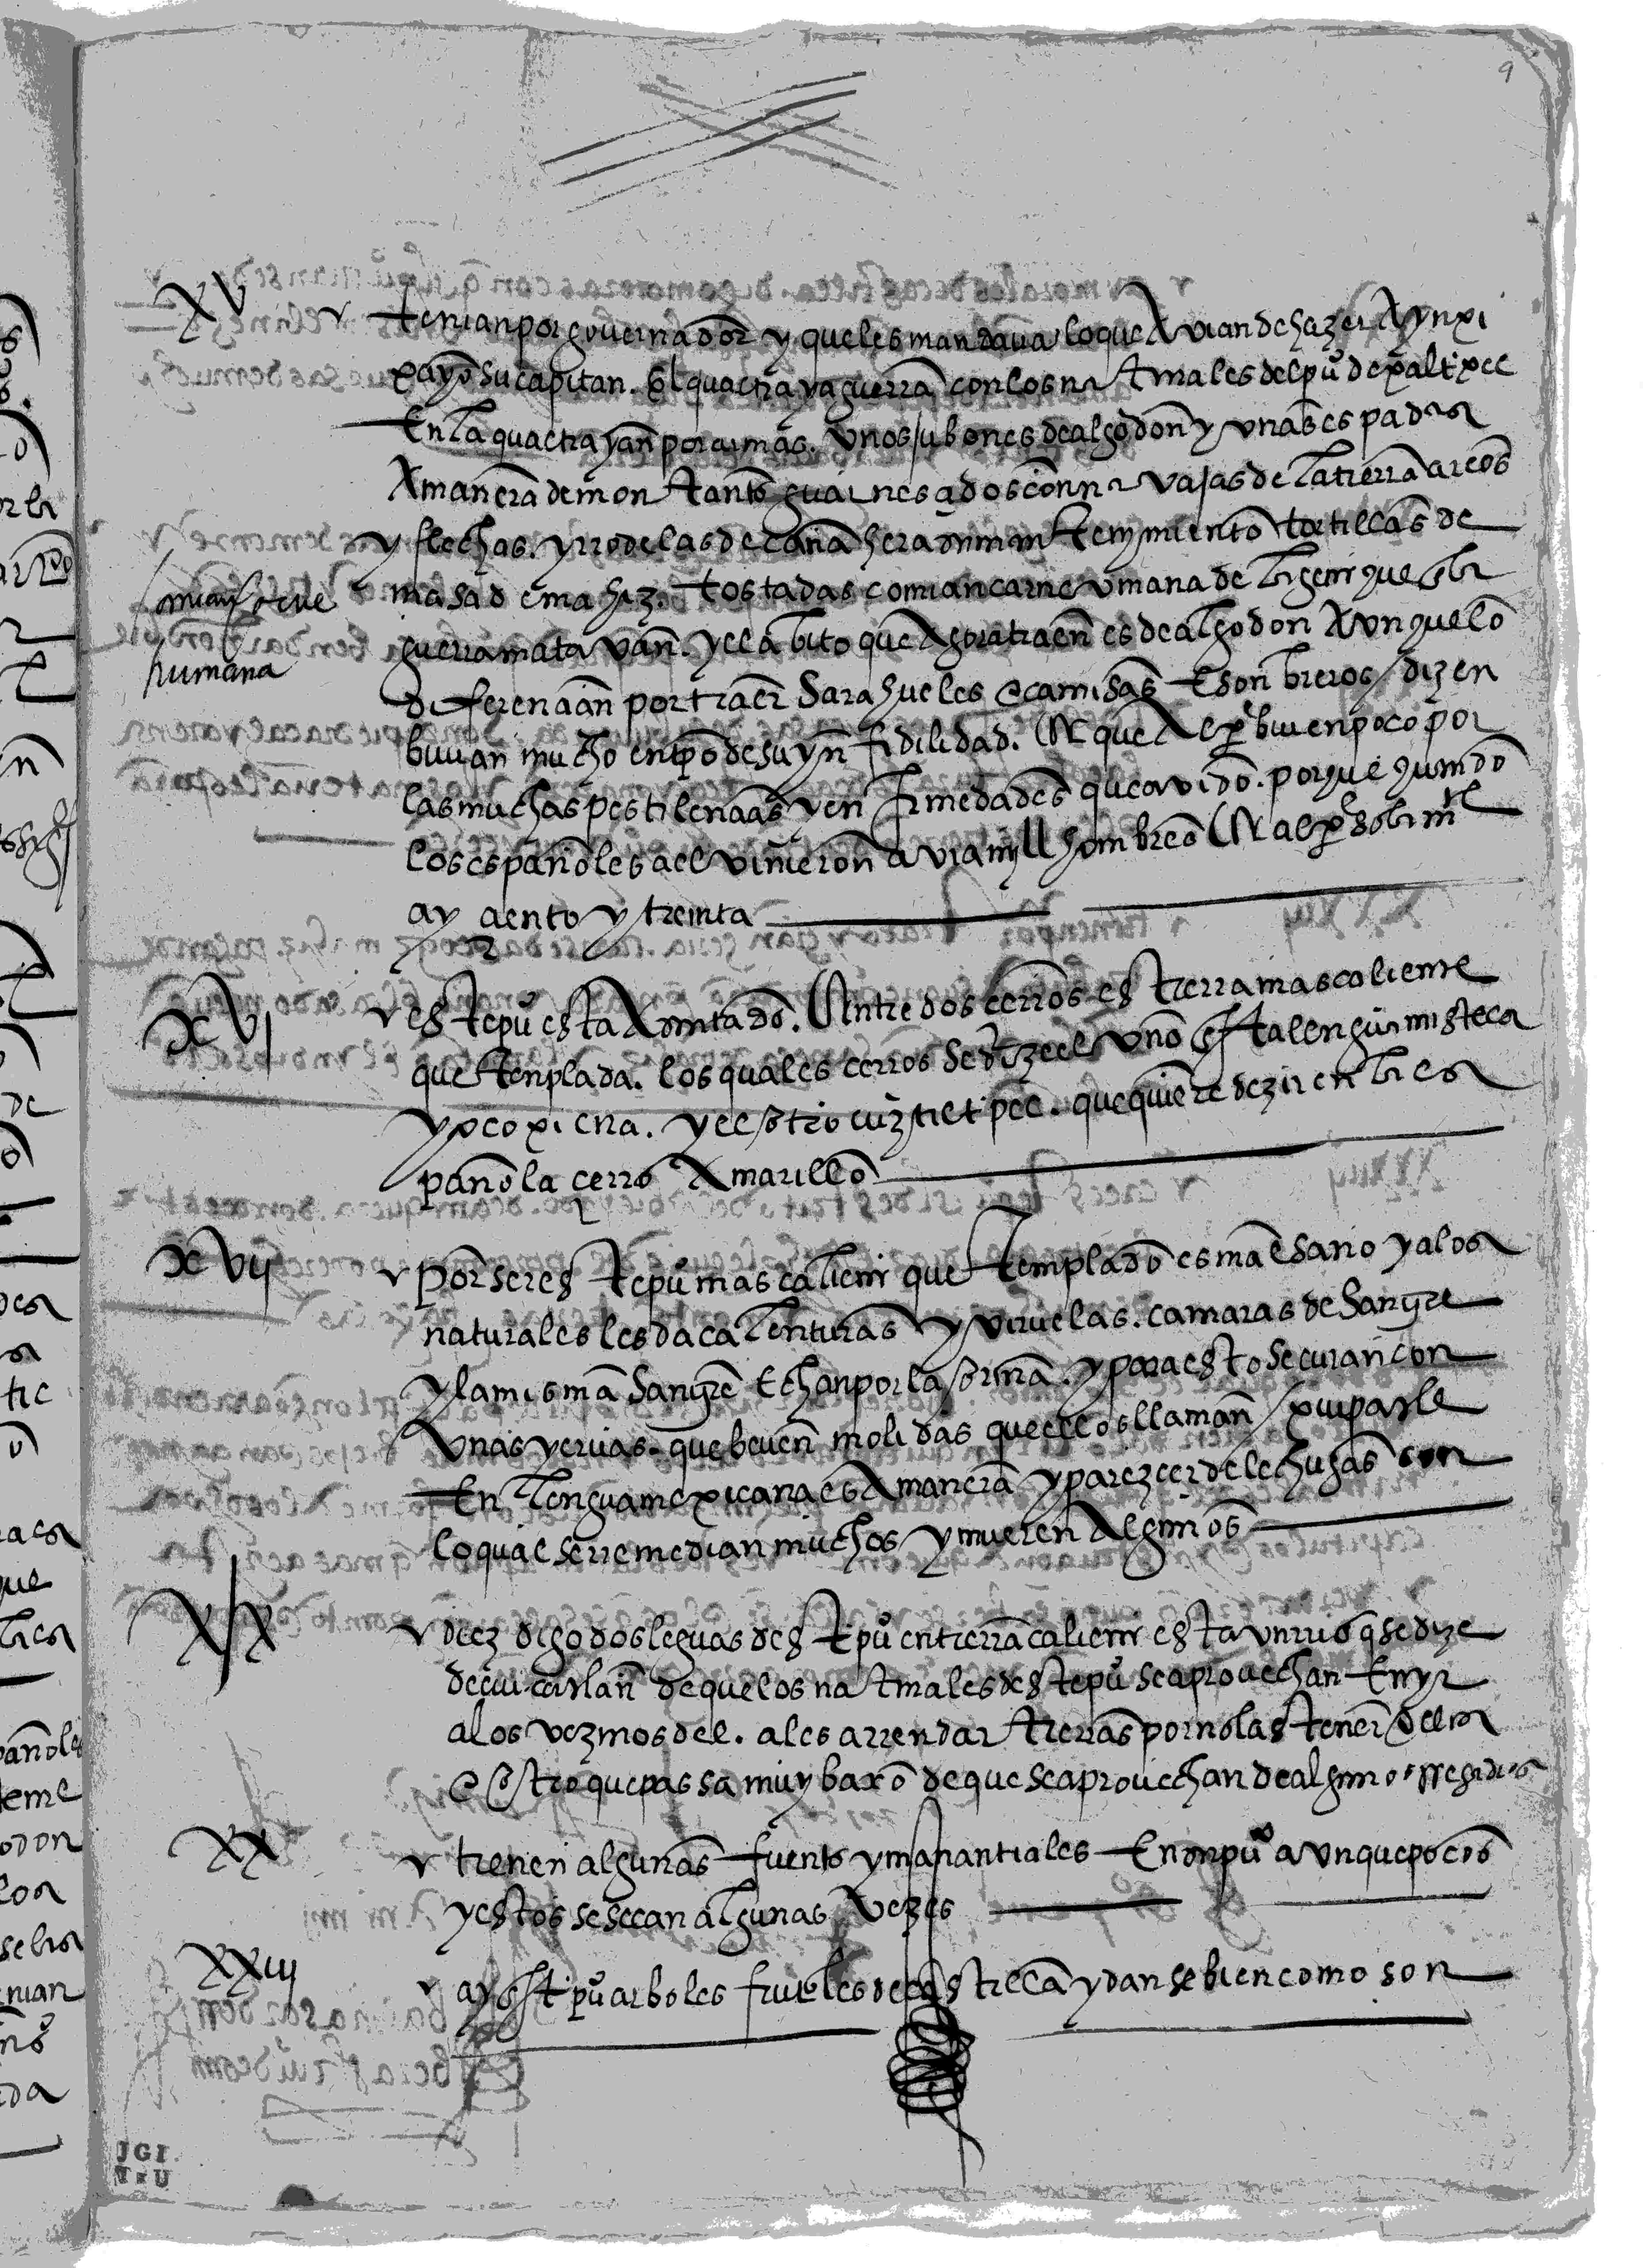 9
XV
tenian por governador y que les mandava lo que avian de hazer a ynxi
xayo su capitan. El qual traya guerra con los naturales del pu͛ de xaltepec
En la qual trayan por armas. unos jubones de algodon y unas espadas
A manera de montantes guarnesçidos con navajas de la tierra arcos
y flechas. y rrodelas de caña hera su mantenymiento tortillas de
masa de mahiz. tostadas comian carne umana de la gente que en la
guerra matavan. y el abito que agora traen es de algodon Aunque lo
diferencian por traer sarahueles e camisas E sonbreros / dizen
bivian mucho en tpō de su ynfidilidad. E que al presente biven poco por
las muchas pestilencias y enfermedades que avido. porque quando
los españoles a el vinieron avia mill honbres E al presente solamente
ay ciento y treinta
comian carne
humana
XVI
este pu͛ esta Asentado. Entre dos cerros es tierra mas caliente
que tenplada. los quales cerros se dize el uno En la lengua misteca
yucoxiena. y el otro cuztictipec. que quiere dezir en la es
pañola cerro Amarillo
XVII
por ser este pu͛ mas caliente que templado es mal sano y a los
naturales les da calenturas y viruelas. camaras de sangre
y la misma sangre Echan por la orina. y para esto se curan con
Unas yervas. que beven molidas que ellos llaman / xuipatle
En lengua mexicana es A manera y parezcer de lechugas con
lo qual se rremedian muchos y mueren Algunos
XIX
diez digo dos leguas deste pu͛ en tierra caliente esta un rrio q̄ se dize
de cuicatlan de que los naturales deste pu͛ se aprovechan En yr
a los vezinos del. a les arrendar tierras por no las tener ellos
e otro que passa muy baxo de que se aprovechan de algunos rregadios
XX
tienen algunas fuentes y manantiales En este pu͛ aunque pocos
y estos se secan algunas vezes
XXIII
ay en este pu͛ arboles frutales de castilla y danse bien como son
JGI
TxU